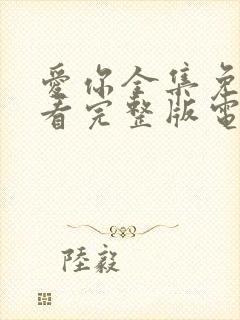 愛你全集免
看完整版電
陸毅